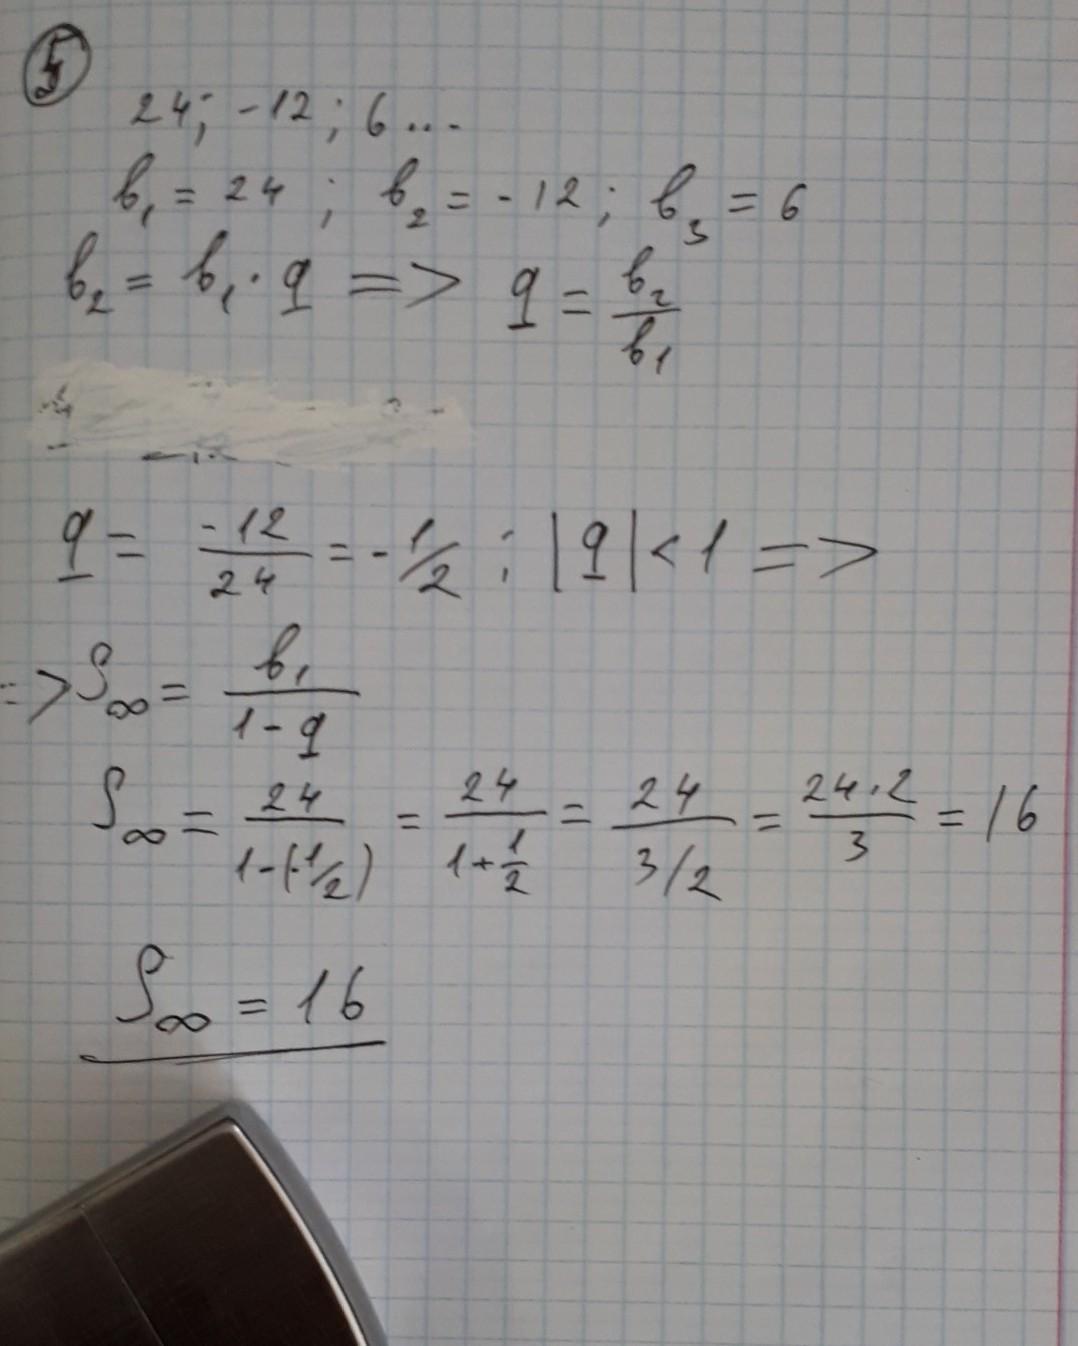 5
24; -12; 6...
b₁ = 24 ; b₂ = -12; b₃ = 6
b₂ = b₁ · q => q = b₂/b₁
q = -12/24 = -1/2 ; |q| < 1 =>
=> S∞ = b₁/(1 - q)
S∞ = 24/(1-(-1/2)) = 24/(1+1/2) = 24/(3/2) = 24·2/3 = 16
S∞ = 16